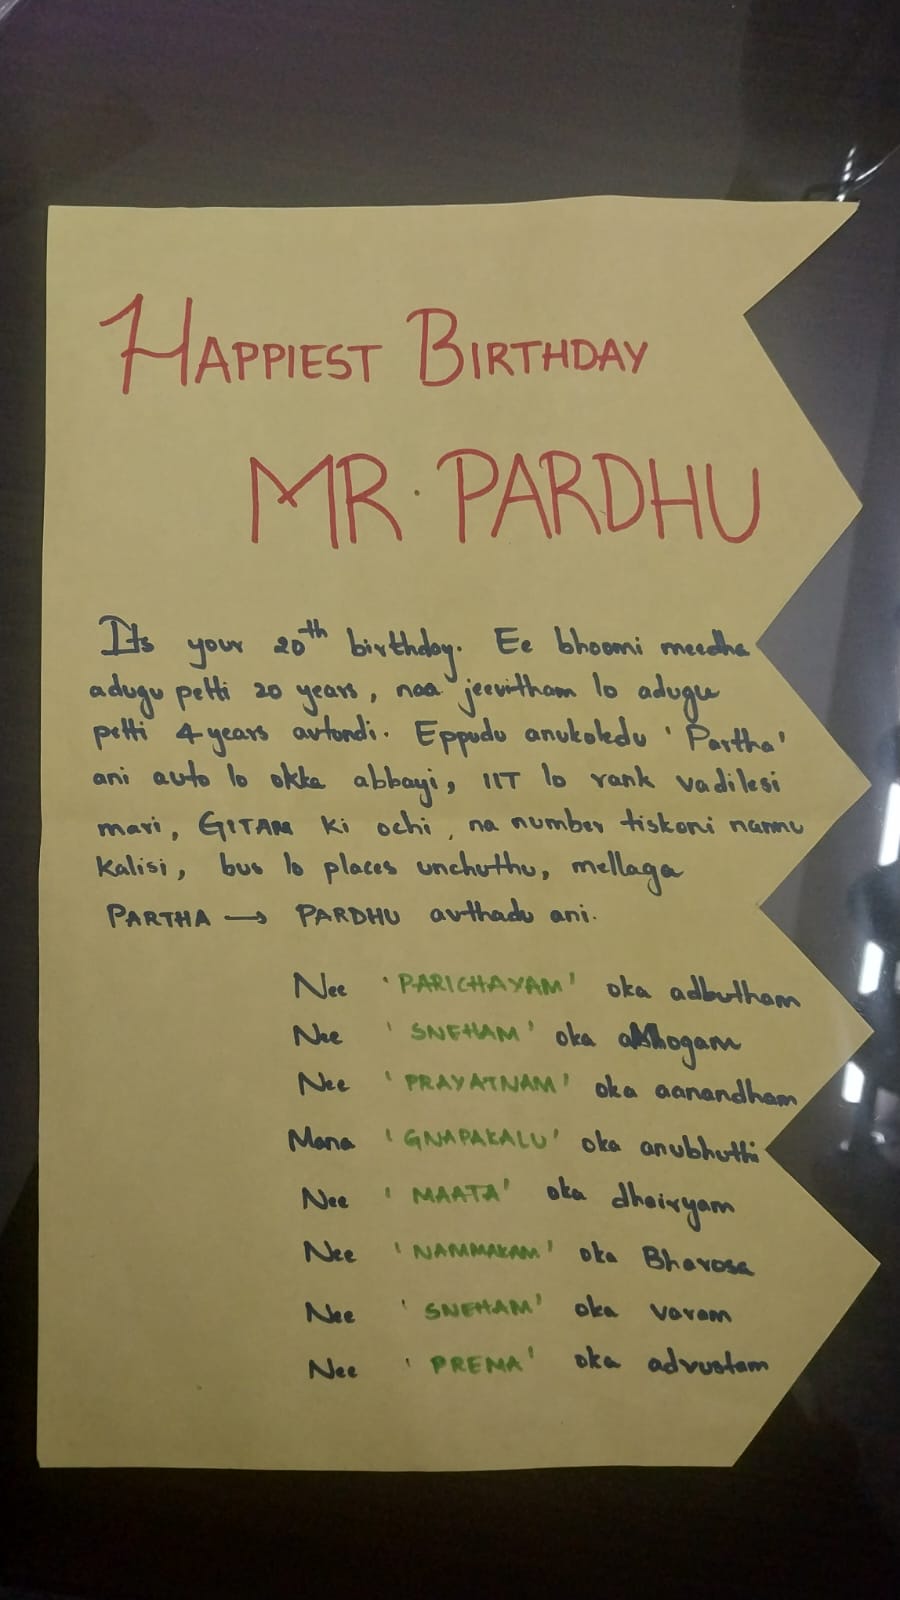 HAPPIEST BIRTHDAY
MR. PARDHU
Its your 20th birthday. Ee bhoomi meedha
adugu petti 20 years, naa jeevitham lo adugu
petti 4 years avtundi. Eppudu anukoledu 'Partha'
ani auto lo okka abbayi, IIT lo rank vadilesi
mari, GITAM ki ochi, na number tiskoni nannu
kalisi, bus lo places unchuthu, mellaga
PARTHA → PARDHU avthadu ani.
Nee 'PARICHAYAM' oka adbutham
Nee 'SNEHAM' oka
Nee 'PRAYATNAM' oka aanandham
Mana 'GNAPAKALU' oka anubhuthi
Nee 'MAATA' oka dhairyam
Nee 'NAMMAKAM' oka Bharosa
Nee 'SNEHAM' oka varam
Nee 'PREMA' oka adrustam